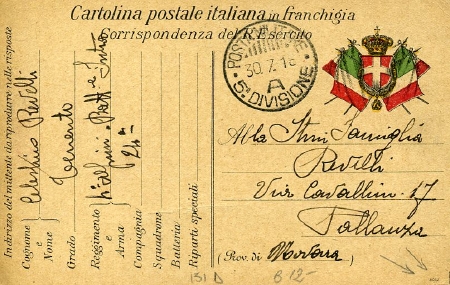 Cartolina postale italiana in franchigia
Corrispondenza del R. Esercito
POSTA MILITARE
30.7.16
A
5ª DIVISIONE
Alla Famiglia
Revelli
Via Cavallini 17
Pallanza
(Prov. di Novara)
Indirizzo del mittente da riprodurre nelle risposte
Cognome e Nome Celestino Revelli
Grado
Reggimento e Arma
Compagnia 24ª
Squadrone
Batteria
Riparti speciali
151 D
B 12-